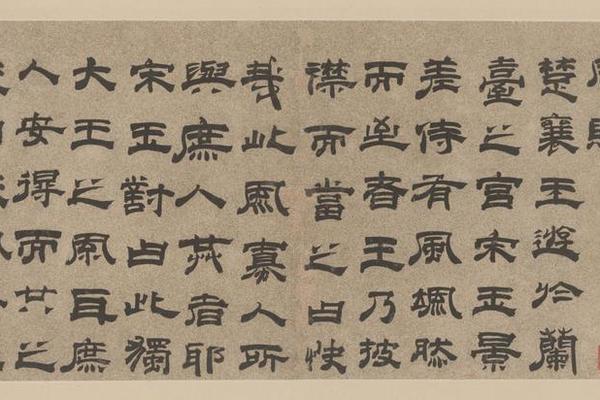 楚襄王遊於蘭
臺之宮宋玉景
差侍有風颯然
而至者王乃披
襟而當之曰快
哉此風寡人所
與庶人共者耶
宋玉對曰此獨
大王之風耳庶
人安得而共之